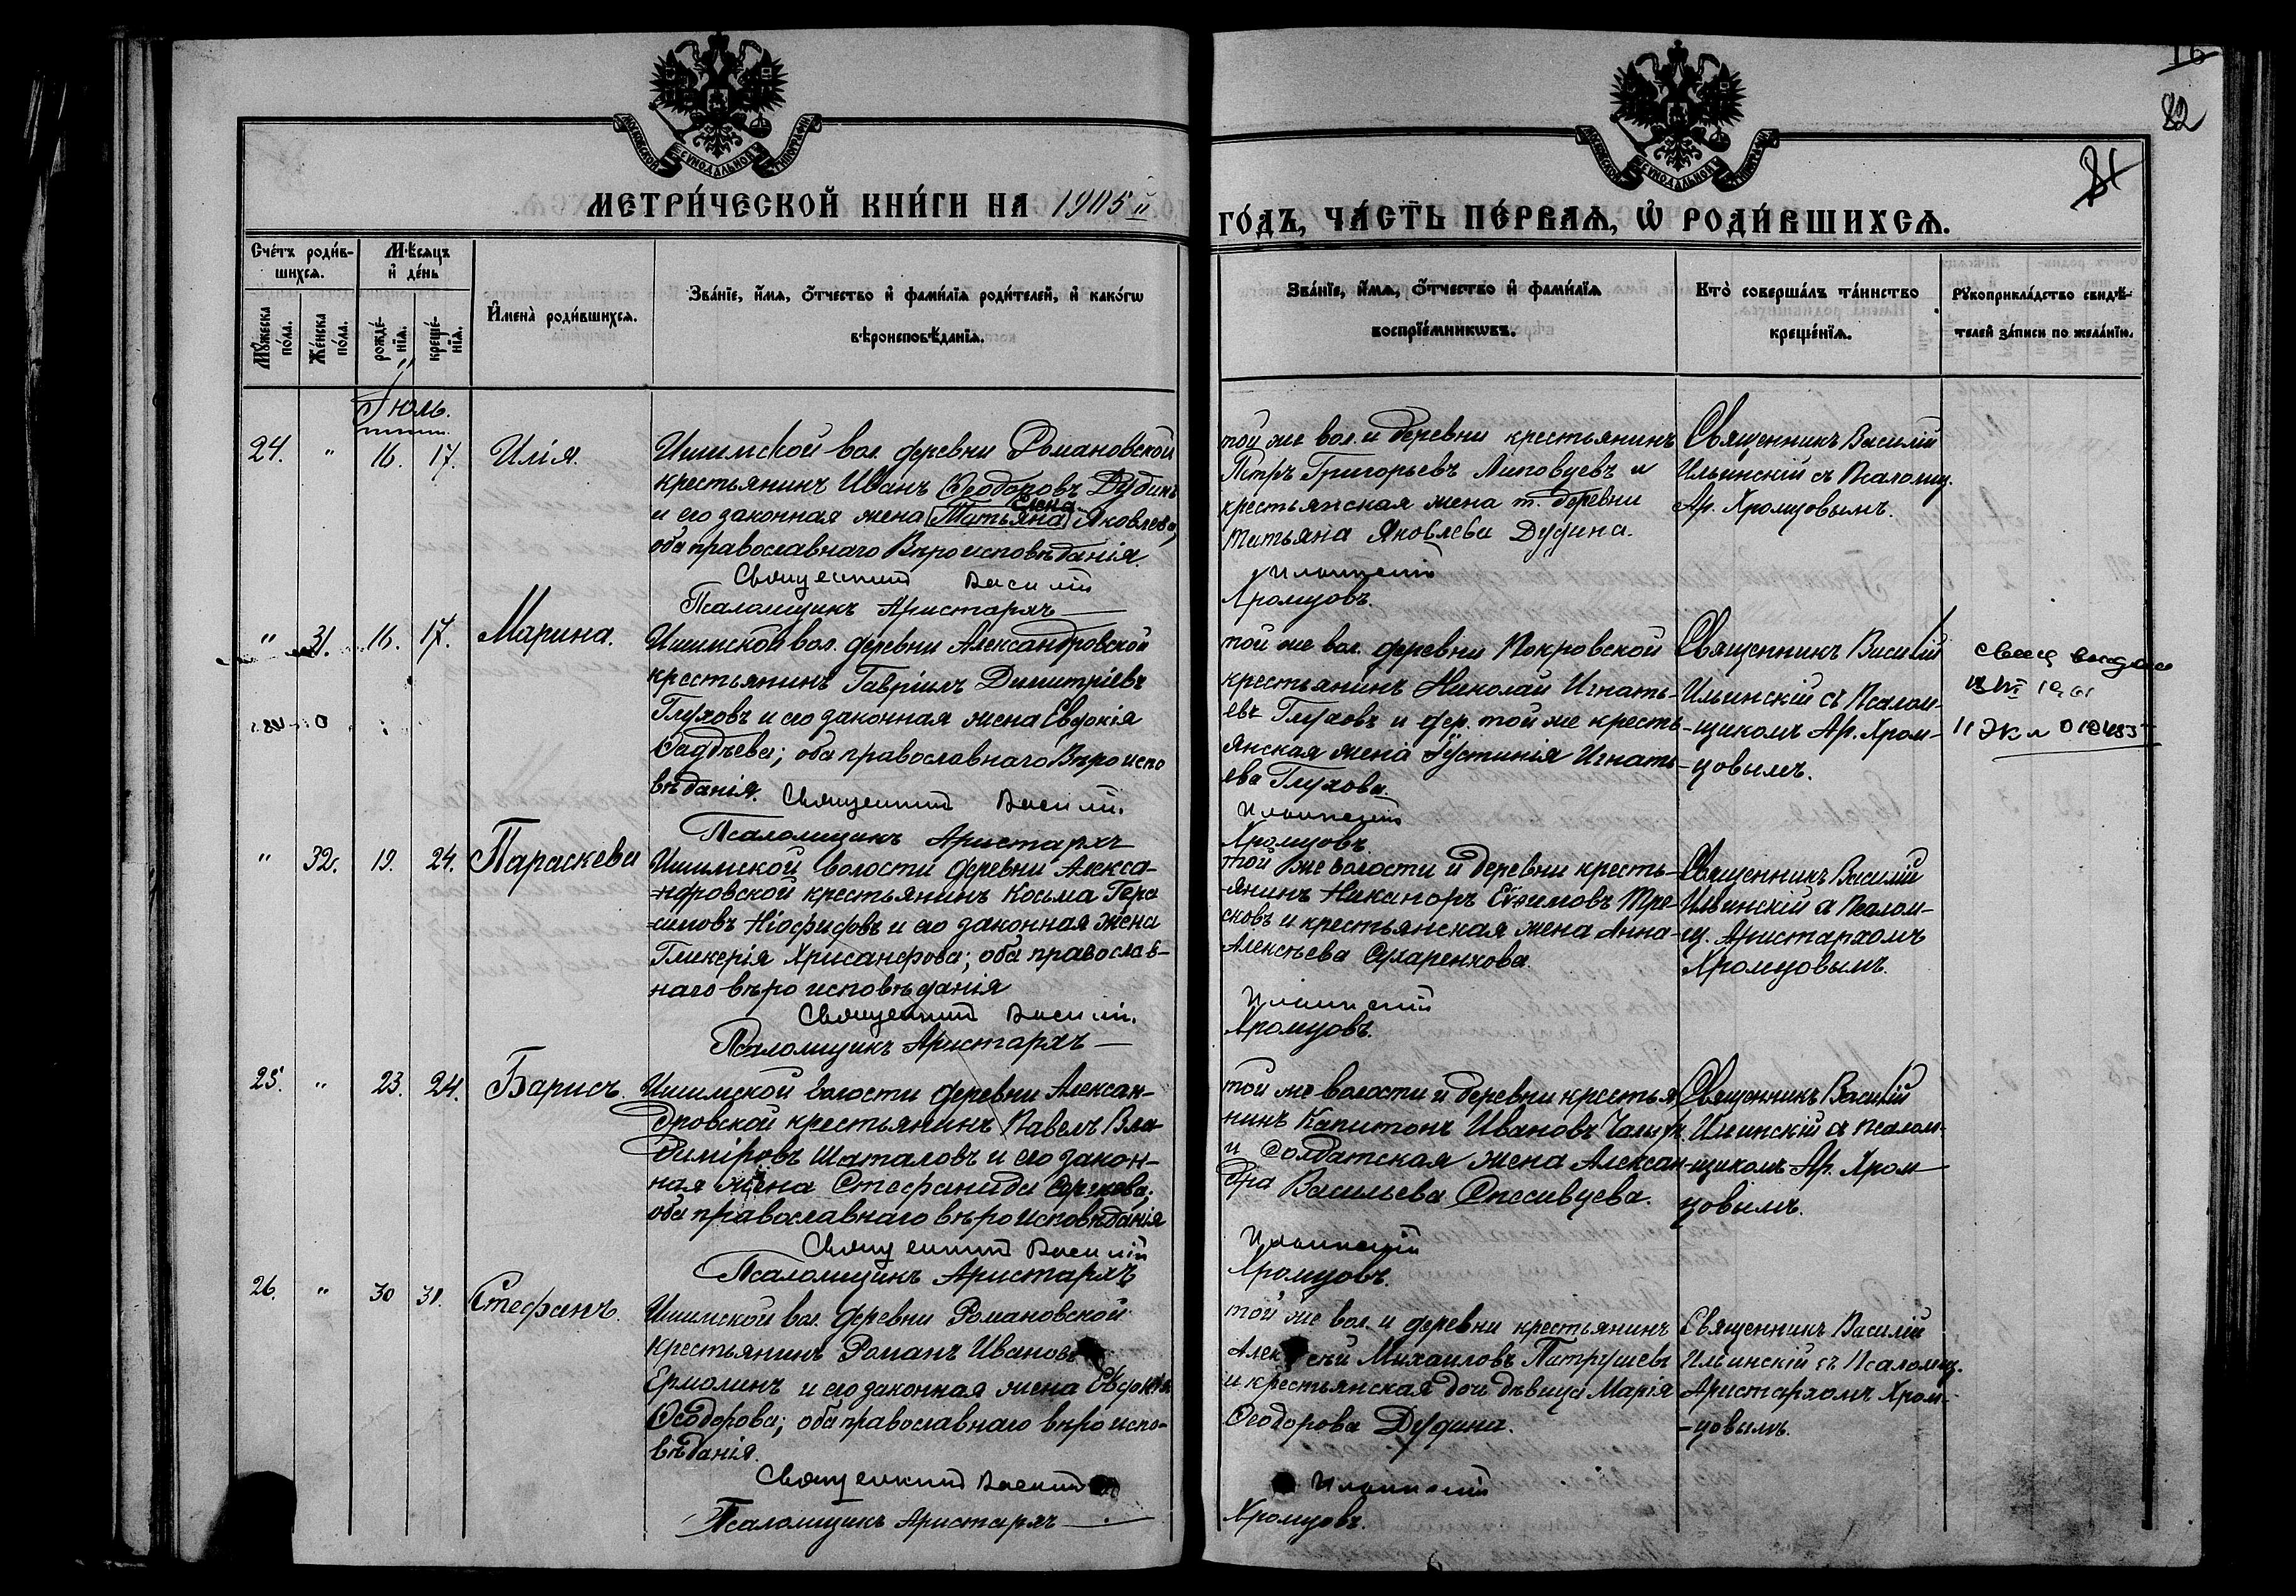 16
82
81
МОСКОВСКОЙ СѴНОДАЛЬНОЙ ТИПОГРАФІИ
МОСКОВСКОЙ СѴНОДАЛЬНОЙ ТИПОГРАФІИ
МЕТРИ́ЧЕСКОЙ КНИ́ГИ НА 1905 й
ГО́ДЪ, ЧА́СТЬ ПЕ́РВАѦ, Ѡ҆ РОДИ́ВШИХСѦ.
Сче́тъ роди́в-
шихсѧ.
Мѣ́сѧцъ
и҆ де́нь
Мꙋ́жеска
по́ла.
Же́нска
по́ла.
рожде́-
нїѧ.
креще́-
нїѧ.
И҆мена̀ роди́вшихсѧ.
Зва́нїе, и҆́мѧ, ѻ҆́тчество и҆ фами́лїѧ роди́телей, и҆ како́гѡ
вѣроисповѣ́данїѧ.
Зва́нїе, и҆́мѧ, ѻ҆́тчество и҆ фами́лїѧ
воспрїе́мникѡвъ.
Кто̀ соверша́лъ та́инство
креще́нїѧ.
Рꙋкоприкла́дство свидѣ́-
телей за́писи по жела́нїю.
Іюль.
24. " 16. 17. Илія.
Ишимской вол. деревни Романовской
крестьянинъ Иванъ Ѳеодоровъ Дудинъ
Елена
и его законная жена Татьяна Яковлева,
оба православнаго Вѣроисповѣданія.
Священникъ Василій
Псаломщикъ Аристархъ
той же вол. и деревни крестьянинъ
Петръ Григорьевъ Липовцевъ и
крестьянская жена т. деревни
Татьяна Яковлева Дудина.
Ильинскій
Хромцовъ.
Священникъ Василій
Ильинскій съ Псаломщ.
Ар. Хромцовымъ.
" 31. 16. 17. Марина.
Ишимской вол. деревни Александровской
крестьянинъ Гавріилъ Димитріевъ
Глуховъ и его законная жена Евдокія
Ѳаддѣева; оба православнаго Вѣроиспо
вѣданія.
Священникъ Василій
Псаломщикъ Аристархъ
той же вол. деревни Покровской
крестьянинъ Николай Игнать-
евъ Глуховъ и дер. той же кресть-
янская жена Іустинія Игнать-
ева Глухова.
Ильинскій
Хромцовъ.
Священникъ Василій
Ильинскій съ Псалом-
-щикомъ Ар. Хром-
-цовымъ.
" 32. 19. 24. Параскева
Ишимской волости деревни Алекса-
-ндровской крестьянинъ Косьма Гера
-симовъ и его законная жена
Гликерія Хрисанфова; оба православ-
наго вѣроисповѣданія
Священникъ Василій
Псаломщикъ Аристархъ
той же волости и деревни кресть-
-янинъ Никаноръ Евѳимовъ Тре-
сковъ и крестьянская жена Анна
Алексѣева
Ильинскій
Хромцовъ.
Священникъ Василій
Ильинскій съ Псалом-
-щ. Аристархомъ
Хромцовымъ.
25. " 23. 24. Барисъ.
Ишимской волости деревни Алексан-
дровской крестьянинъ Павелъ Вла-
диміровъ Шаталовъ и его закон-
ная жена Стефанида
оба православнаго вѣроисповѣданія
Священникъ Василій
Псаломщикъ Аристархъ
той же волости и деревни крестья
нинъ Капитонъ Ивановъ
и солдатская жена Алексан-
дра Васильева Спесивцева.
Ильинскій
Хромцовъ.
Священникъ Василій
Ильинскій съ Псалом-
-щикомъ Ар. Хром
цовымъ.
26. " 30 31. Стефанъ.
Ишимской вол. деревни Романовской
крестьянинъ Романъ Ивановъ
Ермолинъ и его законная жена Евдокія
Ѳеодорова; оба православнаго вѣроиспо-
вѣданія.
Священникъ Василій
Псаломщикъ Аристархъ
той же вол. и деревни крестьянинъ
Алексѣй Михаиловъ Патрушевъ
и крестьянская дочь дѣвица Марія
Ѳеодорова Дудина.
Ильинскій
Хромцовъ.
Священникъ Василій
Ильинскій съ Псаломщ.
Аристархомъ Хром-
-цовымъ.